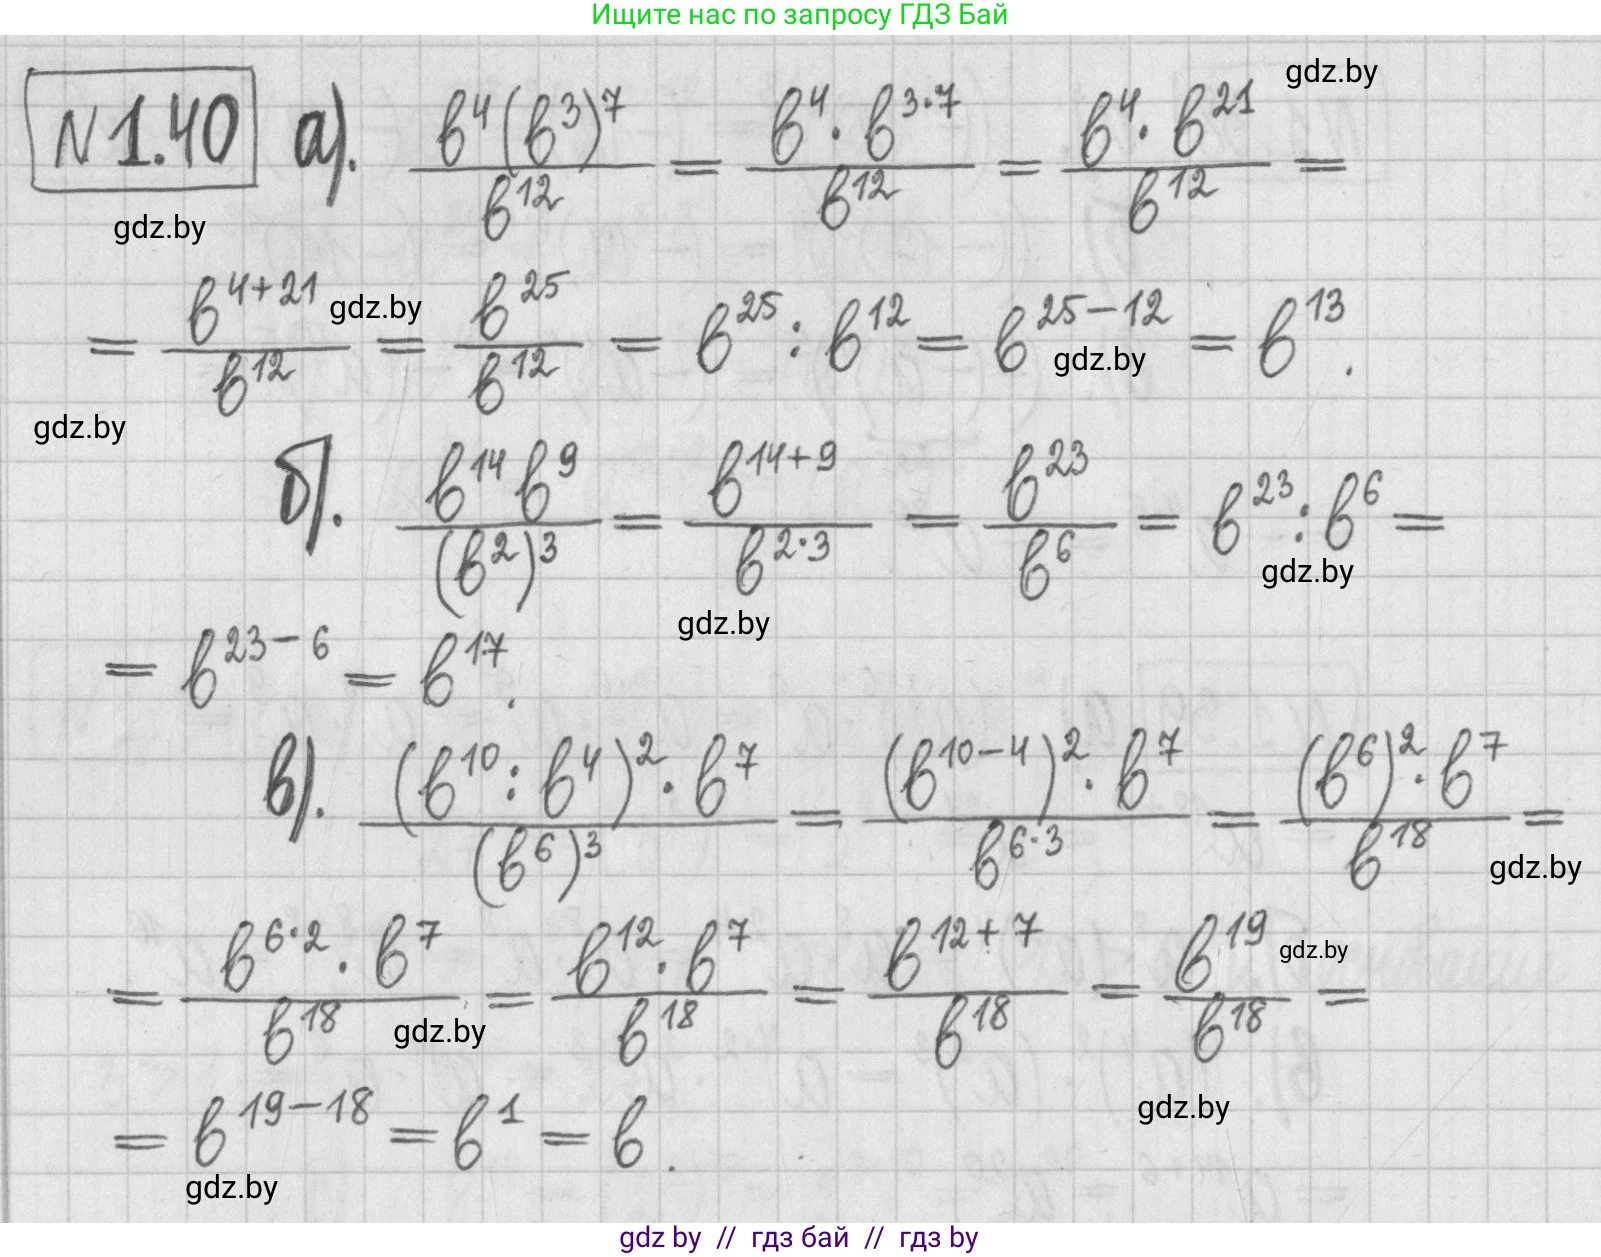 Ищите нас по запросу ГДЗ Бай
gdz.by
N 1.40 а). \frac{b^4(b^3)^7}{b^{12}} = \frac{b^4 · b^{3·7}}{b^{12}} = \frac{b^4 · b^{21}}{b^{12}} =
gdz.by
= \frac{b^{4+21}}{b^{12}} = \frac{b^{25}}{b^{12}} = b^{25} : b^{12} = b^{25-12} = b^{13}.
gdz.by
gdz.by
gdz.by
б). \frac{b^{14} b^9}{(b^2)^3} = \frac{b^{14+9}}{b^{2·3}} = \frac{b^{23}}{b^6} = b^{23} : b^6 =
gdz.by
gdz.by
= b^{23-6} = b^{17}.
в). \frac{(b^{10} : b^4)^2 · b^7}{(b^6)^3} = \frac{(b^{10-4})^2 · b^7}{b^{6·3}} = \frac{(b^6)^2 · b^7}{b^{18}} =
gdz.by
= \frac{b^{6·2} · b^7}{b^{18}} = \frac{b^{12} · b^7}{b^{18}} = \frac{b^{12+7}}{b^{18}} = \frac{b^{19}}{b^{18}} =
gdz.by
gdz.by
= b^{19-18} = b^1 = b.
gdz.by
gdz.by
gdz by // гдз бай // гдз by